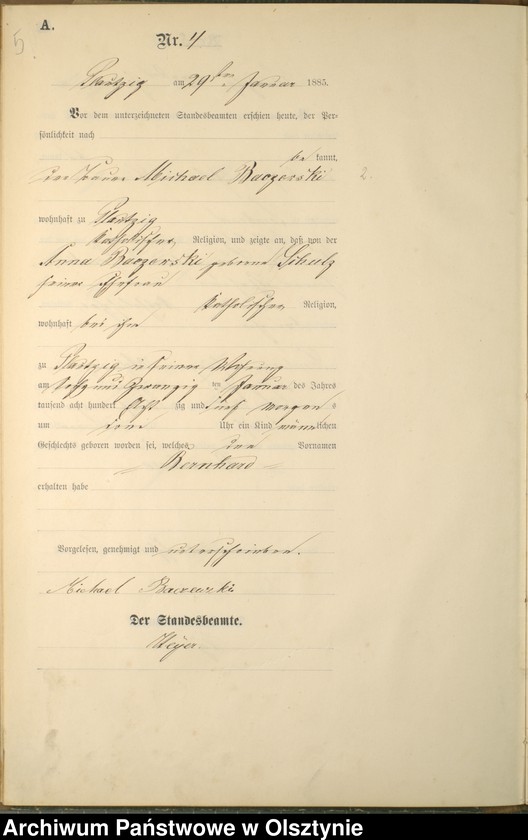 5
A.
Nr. 4
Plautzig am 29ten Januar 1885.
Vor dem unterzeichneten Standesbeamten erschien heute, der Per-
sönlichkeit nach
be kannt,
der Bauer Michael Baczerski 2.
wohnhaft zu Plautzig
katholischer Religion, und zeigte an, daß von der
Anna Baczerski geborene Schulz
seiner Ehefrau
katholischer Religion,
wohnhaft bei ihm
zu Plautzig in seiner Wohnung
am sechs und zwanzig ten Januar des Jahres
tausend acht hundert acht zig und fünf Morgens
um Uhr ein Kind männlichen
Geschlechts geboren worden sei, welches den Vornamen
Bernhard
erhalten habe
Vorgelesen, genehmigt und unterschrieben.
Michael Baczerski
Der Standesbeamte.
Weyer.
Archiwum Państwowe w Olsztynie